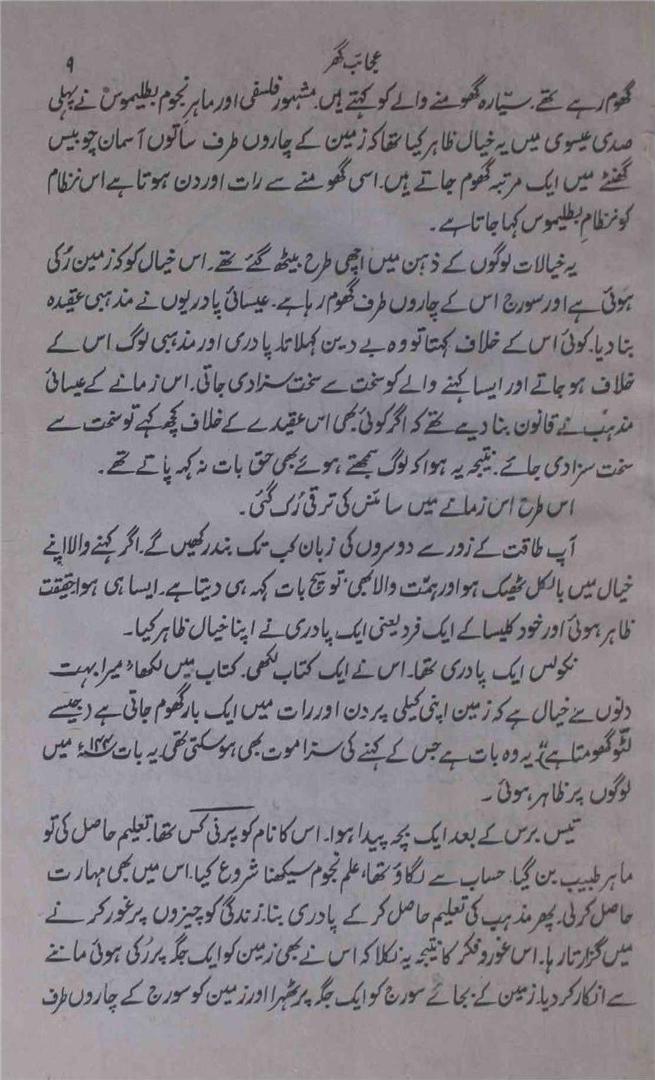 عجائب گھر
۹
گھوم رہے تھے۔ سیّارہ گھومنے والے کو کہتے ہیں۔ مشہور فلسفی اور ماہر نجوم بطلیموس نے پہلی
صدی عیسوی میں یہ خیال ظاہر کیا تھا کہ زمین کے چاروں طرف ساتوں آسمان چوبیس
گھنٹے میں ایک مرتبہ گھوم جاتے ہیں۔ اسی گھومنے سے رات اور دن ہوتا ہے اس نظام
کو نظامِ بطلیموس کہا جاتا ہے۔
یہ خیالات لوگوں کے ذہن میں اچھی طرح بیٹھ گئے تھے۔ اس خیال کو کہ زمین رُکی
ہوئی ہے اور سورج اس کے چاروں طرف گھوم رہا ہے۔ عیسائی پادریوں نے مذہبی عقیدہ
بنا دیا۔ کوئی اس کے خلاف کہتا تو وہ بے دین کہلاتا۔ پادری اور مذہبی لوگ اس کے
خلاف ہو جاتے اور ایسا کہنے والے کو سخت سے سخت سزا دی جاتی۔ اس زمانے کے عیسائی
مذہب نے قانون بنا دیے تھے کہ اگر کوئی بھی اس عقیدے کے خلاف کچھ کہے تو سخت سے
سخت سزا دی جائے۔ نتیجہ یہ ہوا کہ لوگ سمجھتے ہوئے بھی حق بات نہ کہہ پاتے تھے۔
اس طرح اس زمانے میں سائنس کی ترقی رُک گئی۔
آپ طاقت کے زور سے دوسروں کی زبان کب تک بند رکھیں گے۔ اگر کہنے والا اپنے
خیال میں بالکل ٹھیک ہو اور ہمّت والا بھی، تو سچ بات کہہ ہی دیتا ہے۔ ایسا ہی ہوا حقیقت
ظاہر ہوئی اور خود کلیسا کے ایک فرد یعنی ایک پادری نے اپنا خیال ظاہر کیا۔
نکولس ایک پادری تھا۔ اس نے ایک کتاب لکھی۔ کتاب میں لکھا، "میرا بہت
دنوں سے خیال ہے کہ زمین اپنی کیلی پر دن اور رات میں ایک بار گھوم جاتی ہے (جیسے
لٹّو گھومتا ہے)" یہ وہ بات ہے جس کے کہنے کی سزا موت بھی ہو سکتی تھی۔ یہ بات ۱۴۴۴ء میں
لوگوں پر ظاہر ہوئی۔
تیس برس کے بعد ایک بچہ پیدا ہوا۔ اس کا نام کوپرنی کس تھا۔ تعلیم حاصل کی تو
ماہر طبیب بن گیا۔ حساب سے لگاؤ تھا، علم نجوم سیکھنا شروع کیا۔ اس میں بھی مہارت
حاصل کر لی۔ پھر مذہب کی تعلیم حاصل کر کے پادری بنا۔ زندگی کو چیزوں پر غور کرنے
میں گزارتا رہا۔ اس غور و فکر کا نتیجہ یہ نکلا کہ اس نے بھی زمین کو ایک جگہ پر رُکی ہوئی ماننے
سے انکار کر دیا۔ زمین کے بجائے سورج کو ایک جگہ پر ٹھہرا اور زمین کو سورج کے چاروں طرف